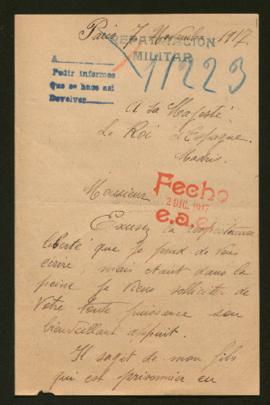 Paris 7 Novembre 1917
REPATRIACIÓN
MILITAR
A
Pedir informes
Que se hace así
Devolver
11223
A Sa Majesté
Le Roi d'Espagne
Madrid
Monsieur
Fecho
2 DIC. 1917
e.a.
Excusez la
liberté que je prend de vous
ecrire, mais etant dans la
peine je viens solliciter de
Votre toute puissance son
bienveillant appuit.
Il sagit de mon fils
qui est prisonnier en